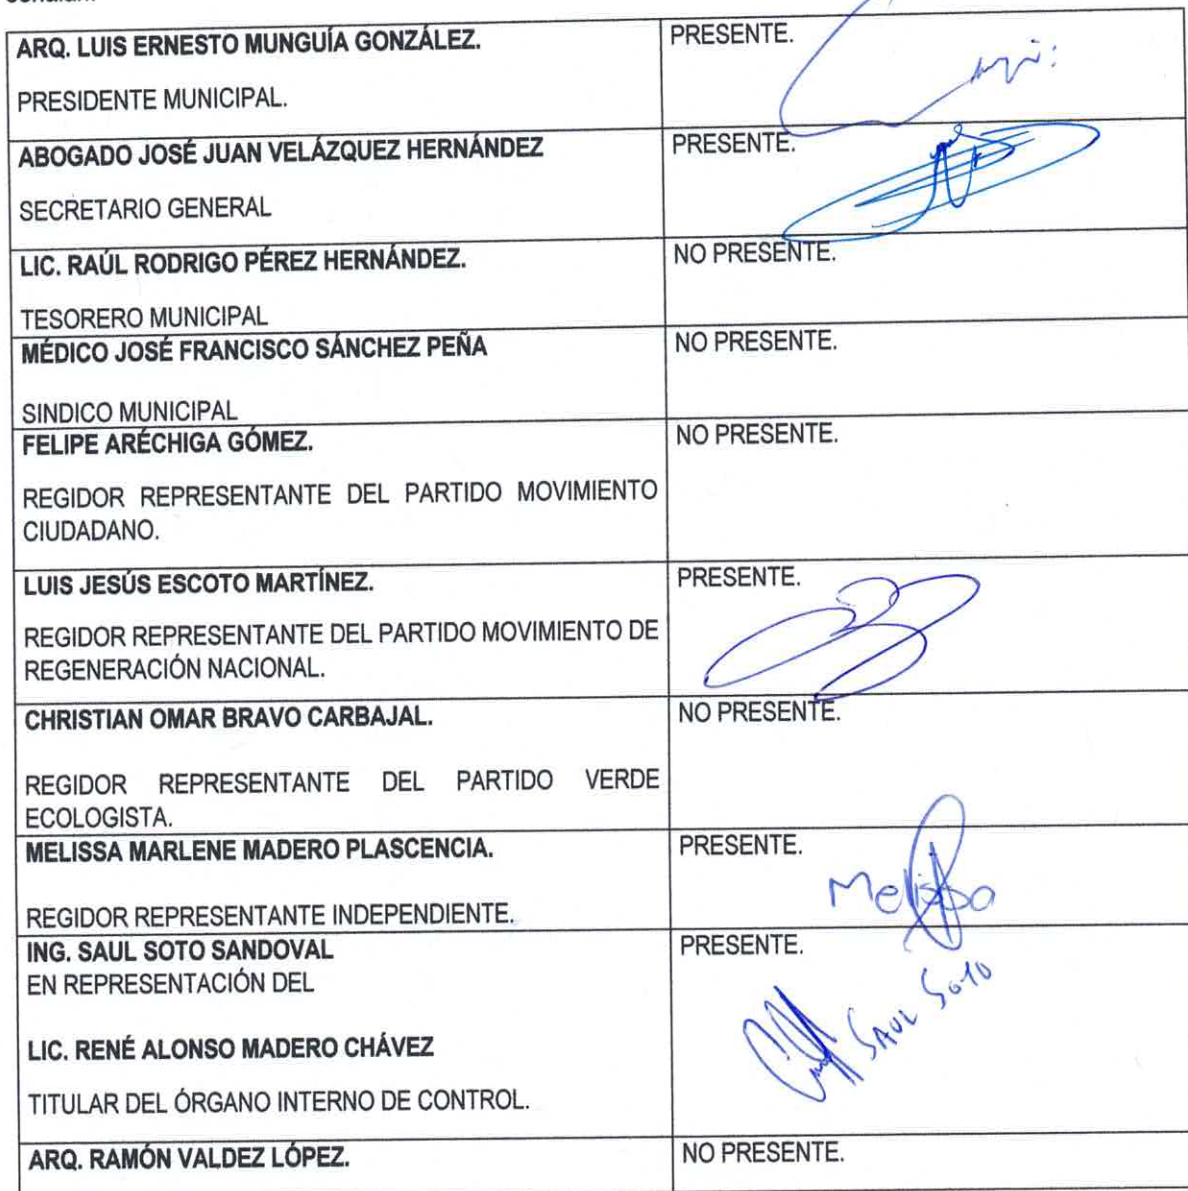 ARQ. LUIS ERNESTO MUNGUÍA GONZÁLEZ.
PRESIDENTE MUNICIPAL.
PRESENTE.
ABOGADO JOSÉ JUAN VELÁZQUEZ HERNÁNDEZ
SECRETARIO GENERAL
PRESENTE.
LIC. RAÚL RODRIGO PÉREZ HERNÁNDEZ.
TESORERO MUNICIPAL
NO PRESENTE.
MÉDICO JOSÉ FRANCISCO SÁNCHEZ PEÑA
SINDICO MUNICIPAL
NO PRESENTE.
FELIPE ARÉCHIGA GÓMEZ.
REGIDOR REPRESENTANTE DEL PARTIDO MOVIMIENTO
CIUDADANO.
NO PRESENTE.
LUIS JESÚS ESCOTO MARTÍNEZ.
REGIDOR REPRESENTANTE DEL PARTIDO MOVIMIENTO DE
REGENERACIÓN NACIONAL.
PRESENTE.
CHRISTIAN OMAR BRAVO CARBAJAL.
REGIDOR REPRESENTANTE DEL PARTIDO VERDE
ECOLOGISTA.
NO PRESENTE.
MELISSA MARLENE MADERO PLASCENCIA.
REGIDOR REPRESENTANTE INDEPENDIENTE.
PRESENTE.
Melissa
ING. SAUL SOTO SANDOVAL
EN REPRESENTACIÓN DEL
LIC. RENÉ ALONSO MADERO CHÁVEZ
TITULAR DEL ÓRGANO INTERNO DE CONTROL.
PRESENTE.
SAUL SOTO
ARQ. RAMÓN VALDEZ LÓPEZ.
NO PRESENTE.